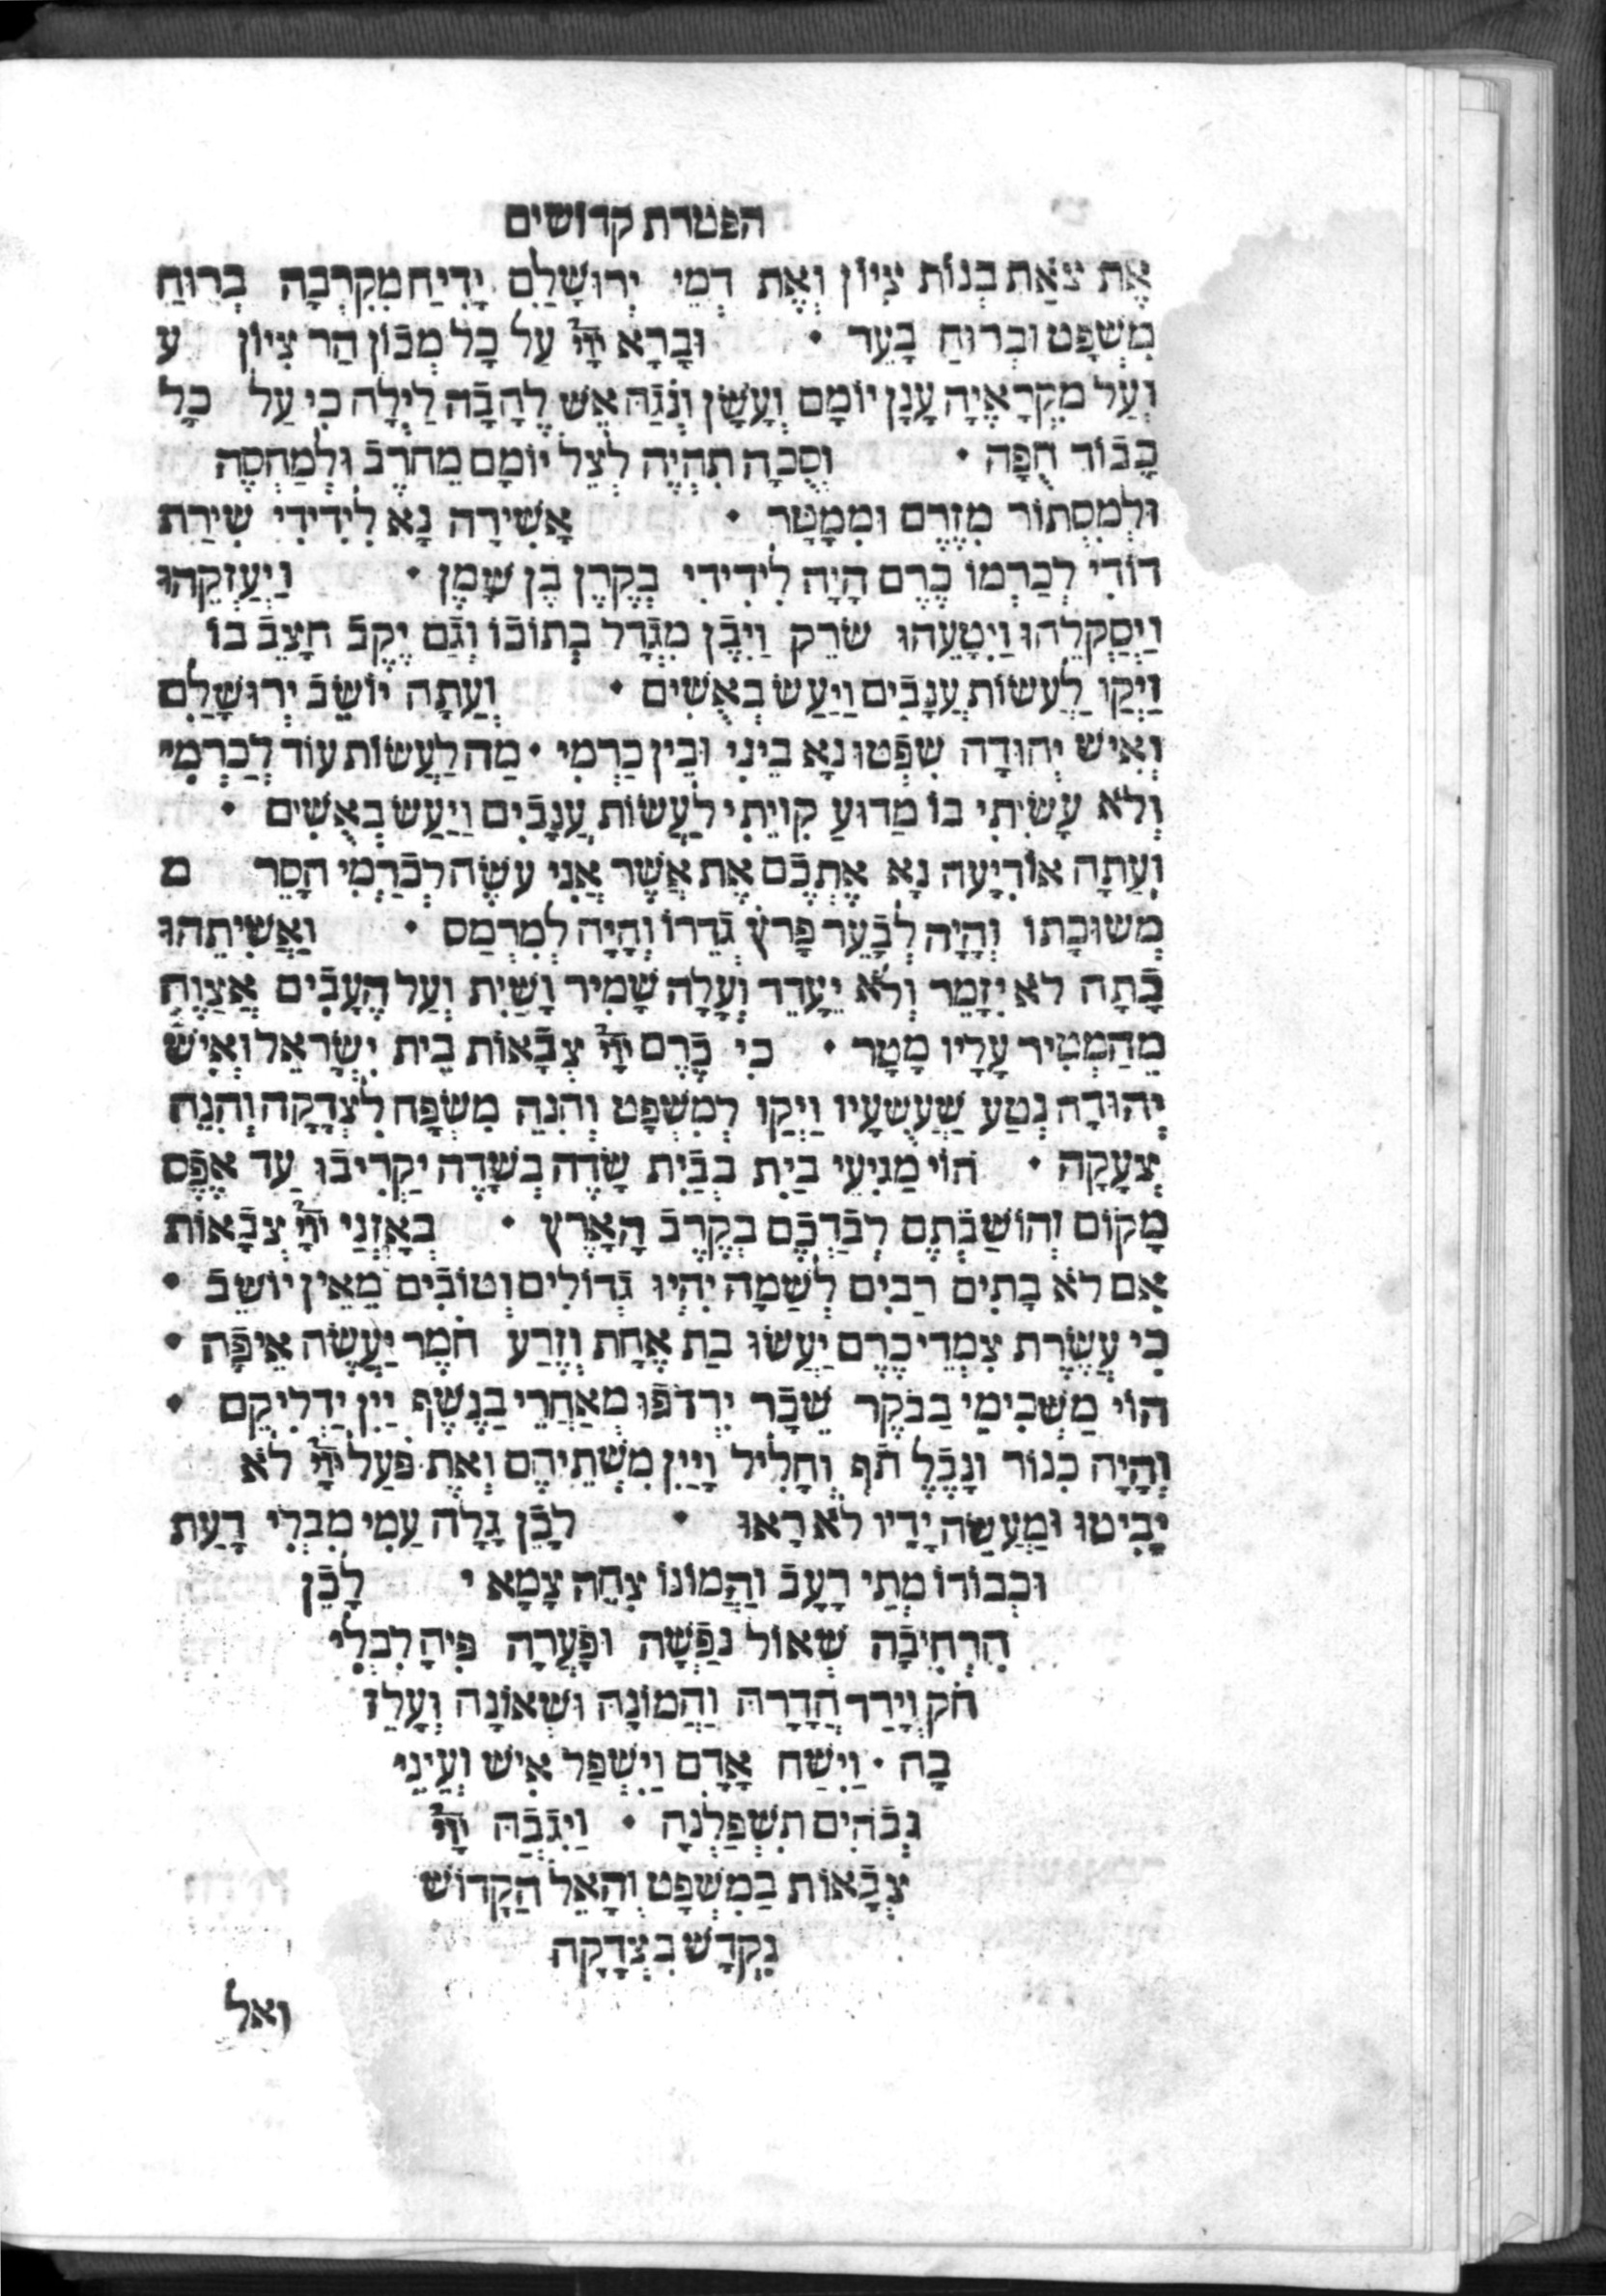 הפטרת קדושים
אֶת צֹאַת בְנוֹת צִיוֹן וְאֶת דְמֵי יְרוּשָׁלִַם יָדִיחַ מִקִרְבָה בְרוּחַ
מִשְׁפָט וּבְרוּחַ בָעֵר · וּבָרָא יְיָ֗ עַל כָל מְכוֹן הַר צִיוֹן ע
וְעַל מִקְרָאֶיהָ עָנָן יוֹמָם וְעָשָׁן וְנֹגַהּ אֵשׁ לֶהָבָה לַיְלָה כִי עַל כָל
כָבוֹד חֻפָה · וְסֻכָה תִהְיֶה לְצֵל יוֹמָם מֵחֹרֶב וּלְמַחְסֶה
וּלְמִסְתוֹר מִזֶרֶם וּמִמָטָר · אָשִׁירָה נָא לִידִידִי שִׁירַת
דוֹדִי לְכַרְמוֹ כֶרֶם הָיָה לִידִידִי בְקֶרֶן בֶן שָׁמֶן · וַיְעַזְקֵהוּ
וַיְסַקְלֵהוּ וַיִטָעֵהוּ שׂרֵק וַיִבֶן מִגְדָל בְתוֹכוֹ וְגַם יֶקֶב חָצֵב בוֹ
וַיְקַו לַעֲשׂוֹת עֲנָבִים וַיַעַשׂ בְאֻשִׁים · וְעַתָה יוֹשֵׁב יְרוּשָׁלִַם
וְאִישׁ יְהוּדָה שִׁפְטוּ נָא בֵינִי וּבֵין כַרְמִי · מַה לַעֲשׂוֹת עוֹד לְכַרְמִי
וְלֹא עָשִׂיתִי בוֹ מַדוּעַ קִוֵיתִי לַעֲשׂוֹת עֲנָבִים וַיַעַשׂ בְאֻשִׁים ·
וְעַתָה אוֹדִיעָה נָא אֶתְכֶם אֶת אֲשֶׁר אֲנִי עשֶׂה לְכַרְמִי הָסֵר מ
מְשׂוּכָתוֹ וְהָיָה לְבָעֵר פָרֹץ גְדֵרוֹ וְהָיָה לְמִרְמָס · וַאֲשִׁיתֵהוּ
בָתָה לֹא יִזָמֵר וְלֹא יֵעָדֵר וְעָלָה שָׁמִיר וָשָׁיִת וְעַל הֶעָבִים אֲצַוֶה
מֵהַמְטִיר עָלָיו מָטָר · כִי כֶרֶם יְיָ֗ צְבָאוֹת בֵית יִשְׂרָאֵל וְאִישׁ
יְהוּדָה נְטַע שַׁעֲשֻׁעָיו וַיְקַו לְמִשְׁפָט וְהִנֵה מִשְׂפָח לִצְדָקָה וְהִנֵה
צְעָקָה · הוֹי מַגִיעֵי בַיִת בְבַיִת שָׂדֶה בְשָׂדֶה יַקְרִיבוּ עַד אֶפֶס
מָקוֹם וְהוּשַׁבְתֶם לְבַדְכֶם בְקֶרֶב הָאָרֶץ · בְאָזְנַי יְיָ֗ צְבָאוֹת
אִם לֹא בָתִים רַבִים לְשַׁמָה יִהְיוּ גְדוֹלִים וְטוֹבִים מֵאֵין יוֹשֵׁב ·
כִי עֲשֶׂרֶת צִמְדֵי כֶרֶם יַעֲשׂוּ בַת אֶחָת וְזֶרַע חֹמֶר יַעֲשֶׂה אֵיפָה ·
הוֹי מַשְׁכִימֵי בַבֹקֶר שֵׁכָר יִרְדֹפוּ מְאַחֲרֵי בַנֶשֶׁף יַיִן יַדְלִיקֵם ·
וְהָיָה כִנוֹר וָנֶבֶל תֹף וְחָלִיל וָיַיִן מִשְׁתֵיהֶם וְאֶת פֹעַל יְיָ֗ לֹא
יַבִיטוּ וּמַעֲשֵׂה יָדָיו לֹא רָאוּ · לָכֵן גָלָה עַמִי מִבְלִי דָעַת
וּכְבוֹדוֹ מְתֵי רָעָב וַהֲמוֹנוֹ צִחֵה צָמָא · לָכֵן
הִרְחִיבָה שְׁאוֹל נַפְשָׁה וּפָעֲרָה פִיהָ לִבְלִי
חֹק וְיָרַד הֲדָרָהּ וַהֲמוֹנָהּ וּשְׁאוֹנָהּ וְעָלֵז
בָהּ · וַיִשַׁח אָדָם וַיִשְׁפַל אִישׁ וְעֵינֵי
גְבֹהִים תִשְׁפַלְנָה · וַיִגְבַהּ יְיָ֗
צְבָאוֹת בַמִשְׁפָט וְהָאֵל הַקָדוֹשׁ
נִקְדָשׁ בִצְדָקָה
ואל